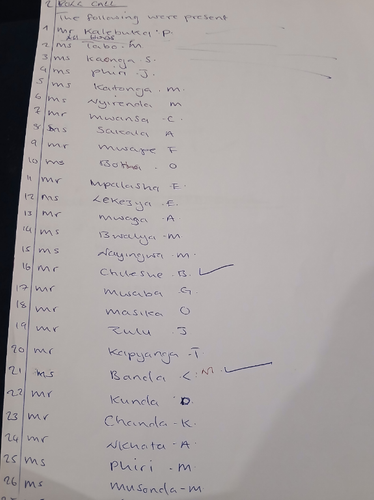 2 ROLL CALL
The following were present
1 Mr Kalebuka P.
2 ms Tabo M.
3 ms Kaonga S.
4 ms Phiri J.
5 ms Katonga M.
6 ms Nyirenda M
7 mr Mwansa C.
8 ms Sakala A
9 mr Mwape F
10 ms Botha O
11 mr Mpalasha F.
12 ms Lekezya E.
13 mr Mwaga A
14 ms Bwalya M
15 ms Nayingwa M.
16 mr Chileshe B.
17 mr Mwaba G.
18 mr Masika O
19 mr Zulu J
20 mr Kapyanga T
21 ms Banda C.M.
22 mr Kunda D.
23 mr Chanda K.
24 mr Nkhata A.
25 ms Phiri M.
26 ms Musonda M.